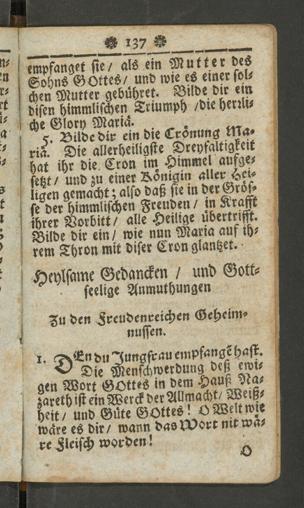 137
empfanget sie / als ein Mutter des
Sohns GOttes / und wie es einer sol-
chen Mutter gebühret. Bilde dir ein
disen himmlischen Triumph / die herzli-
che Glory Mariä.
5. Bilde dir ein die Crönung Ma-
riä. Die allerheiligste Dreyfaltigkeit
hat ihr die Cron im Himmel aufge-
setzt / und zu einer Königin aller Hei-
ligen gemacht; also daß sie in der Grös-
se der himmlischen Freuden / in Krafft
ihrer Vorbitt / alle Heilige übertrifft.
Bilde dir ein / wie nun Maria auf ih-
rem Thron mit diser Cron glantzet.
Heylsame Gedancken / und Gott-
seelige Anmuthungen
Zu den Freudenreichen Geheim-
nussen.
1. DEn du Jungfrau empfangē hast.
Die Menschwerdung deß ewi-
gen Wort GOttes in dem Hauß Na-
zareth ist ein Werck der Allmacht / Weiß-
heit / und Güte GOttes! O Welt wie
wäre es dir / wann das Wort nit wä-
re Fleisch worden!
O